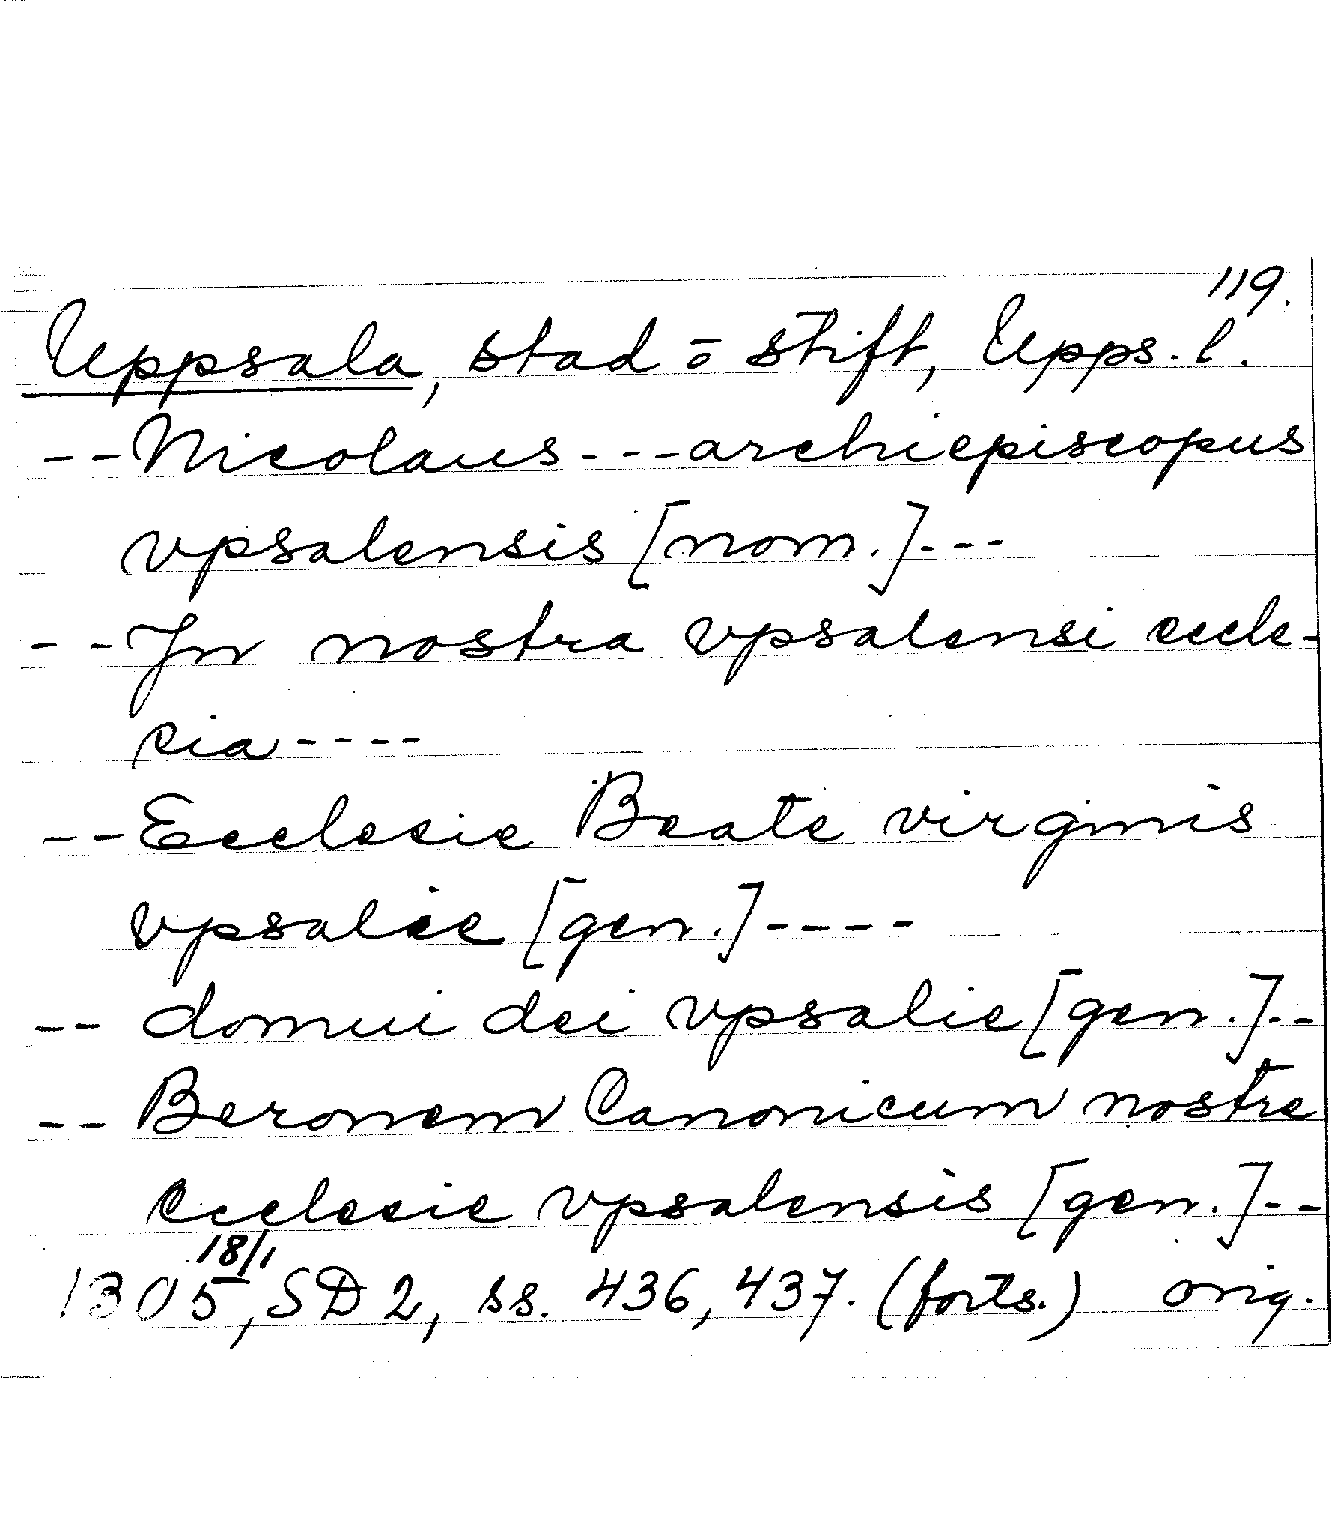 119.
Uppsala, stad o stift, Upps. l.
-- Nicolaus --- archiepiscopus
vpsalensis [nom.] ---
-- Jn nostra vpsalensi eccle-
cia ----
-- Ecclecie Beate virginis
vpsalie [gen.] ----
-- domui dei vpsalie [gen.] --
-- Beronem Canonicum nostre
ecclecie vpsalensis [gen.] --
1305 18/1, SD 2, ss. 436, 437. (forts.) orig.